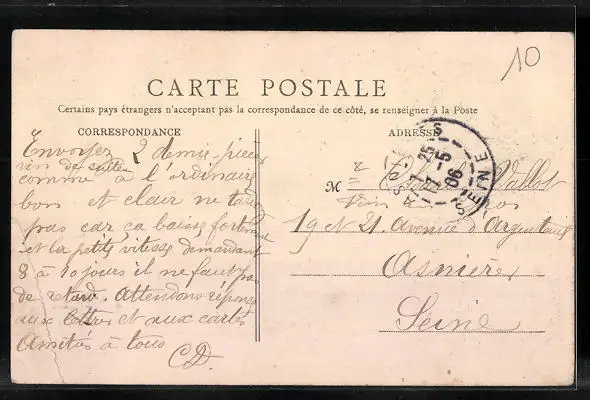 10
CARTE POSTALE
Certains pays étrangers n'acceptant pas la correspondance de ce côté, se renseigner à la Poste
CORRESPONDANCE
Envoyez 2 demie-pièces
vin de suite
comme à l'ordinaire
bon et clair ne tardez
pas car ça baisse fortement
et la petite vitesse demandant
8 à 10 jours il ne faut pas
de retard. Attendons réponse
aux lettres et aux cartes
Amitiés à tous
CD.
ADRESSE
M Vallot
Vins
19 et 21 Avenue d'Argenteuil
Asnières
Seine
25
7-5
06
SEINE